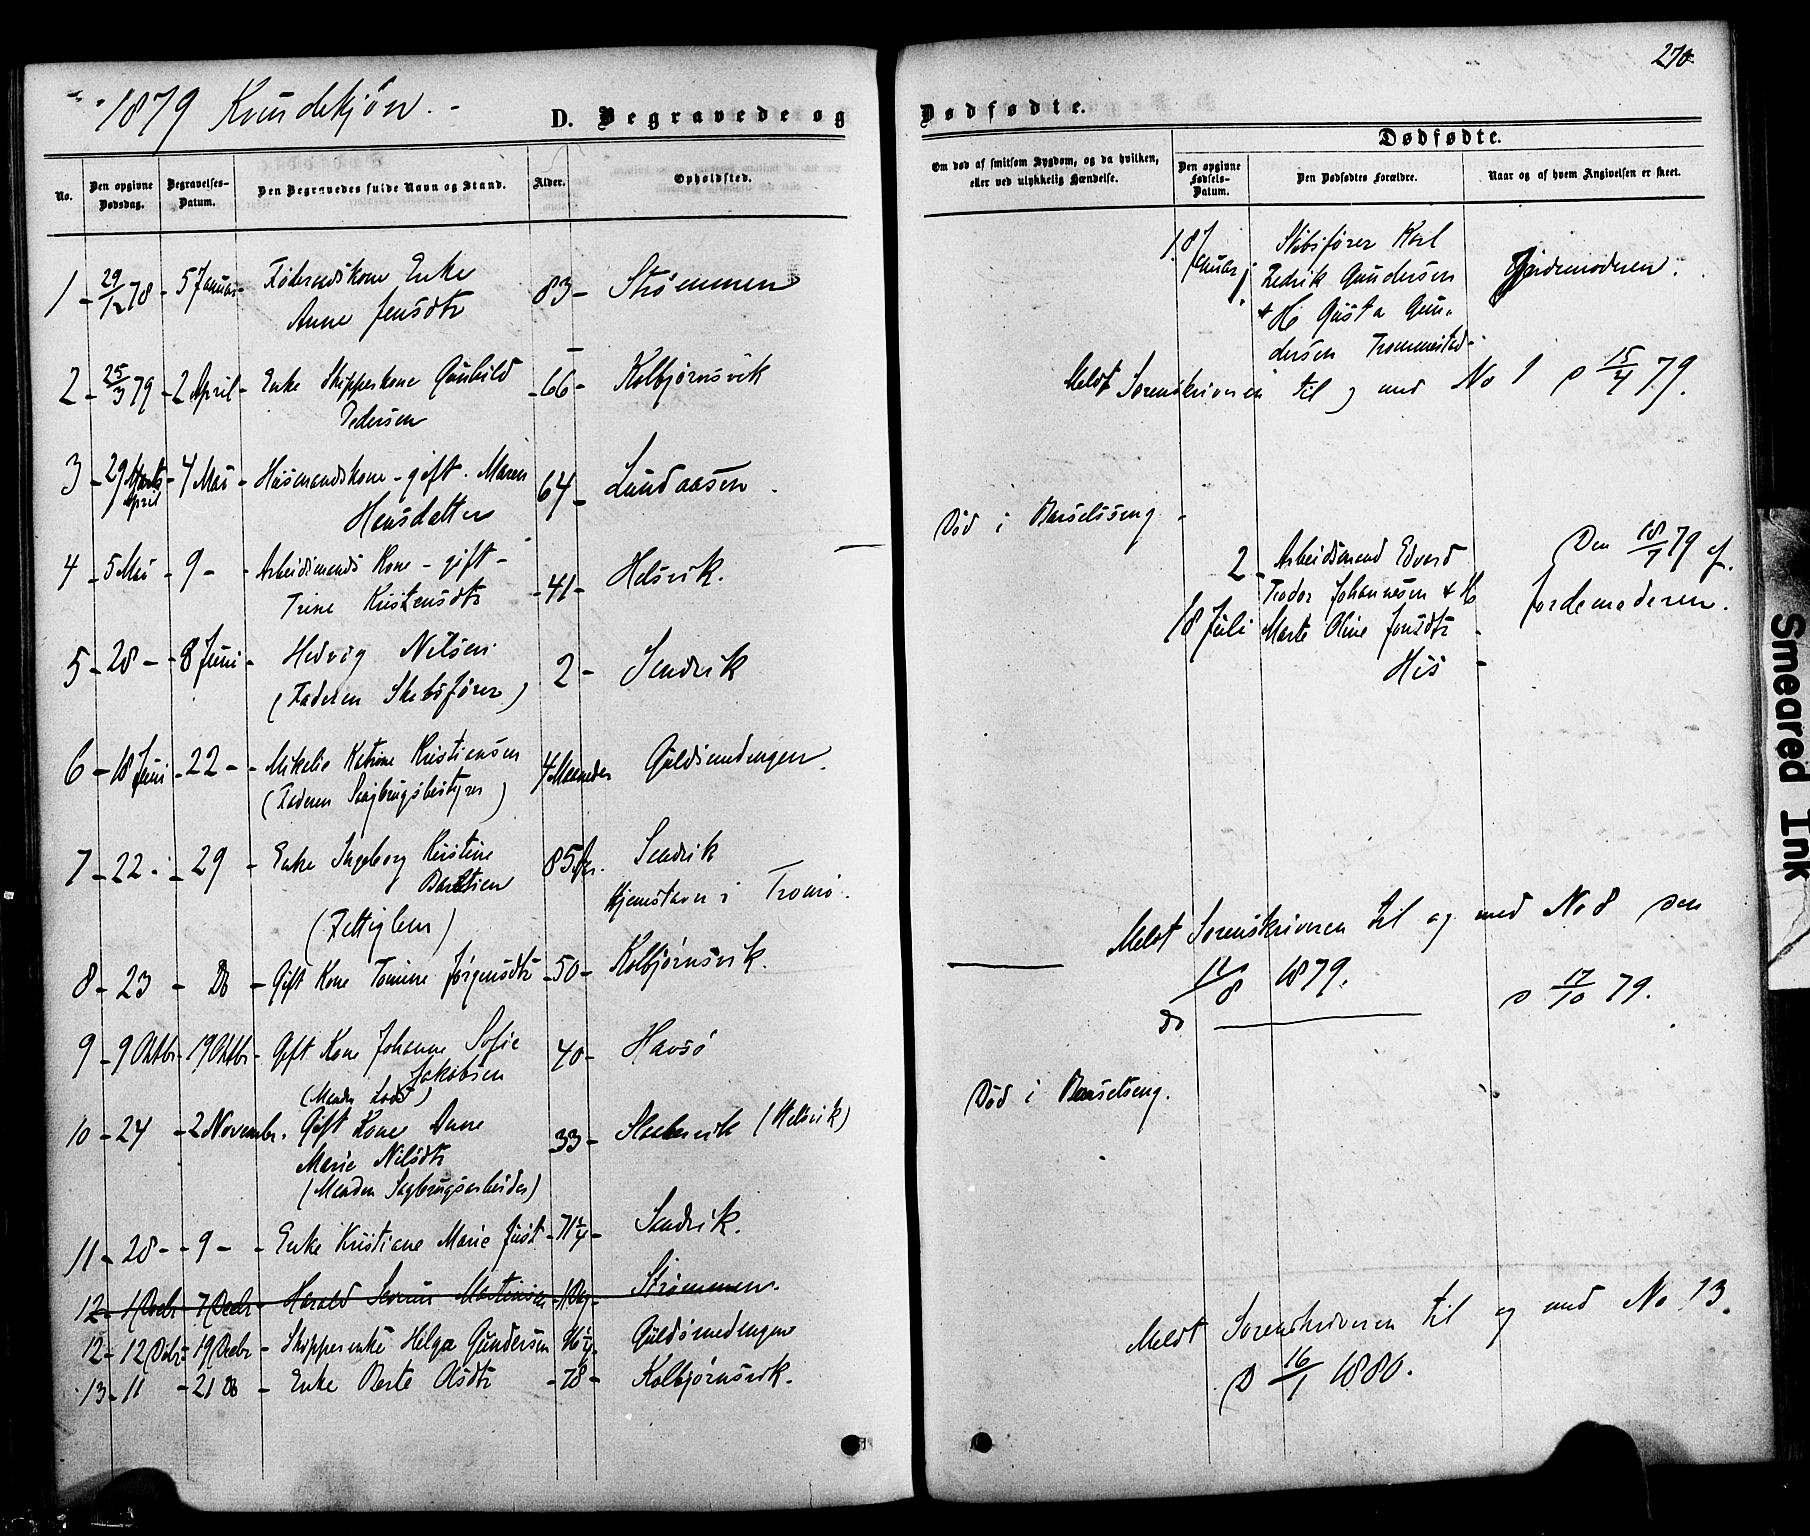 1879 Kvindekjøn.
270
D. Begravede og Dødfødte.
No.
Den opgivne Dødsdag.
Begravelses-Datum.
Den Begravedes fulde Navn og Stand.
Alder.
Opholdsted.
Om død af smitsom Sygdom, og da hvilken, eller ved ulykkelig Hændelse.
Dødfødte.
Den opgivne Fødsels-Datum.
Den Dødfødtes Forældre.
Naar og af hvem Angivelsen er skeet.
1 - 29/12 78 - 5 Januar - Føderaadskone Enke 83 - Strømmen
Anne Jensdtr
2 - 25/3 79 - 2 April - Enke Skipperkone Gunhild - 66 - Kolbjørnsvik
Pedersen
3 - 29 Marts - 4 Mai - Husmandskone - gift. Maren 64 - Lundaasen.
April Hansdatter
4 - 5 Mai - 9 - - Arbeidsmands Kone - gift - - 41 - Helsvik.
Trine Kristensdtr
5 - 28 - - 8 Juni - Hedvig Nilsen 2 - Sandvik
(Faderen Skibsfører)
6 - 18 Juni - 22 - - Mikelie Katrine Kristiansen 4 Maaneder Guldsmedengen.
(Faderen Sagbrugsbestyrer)
7 - 22 - - 29 - Enke Ingeborg Kirstine 85 Aar. Sandvik
Bastien Hjemstavn i Tromø.
(Fattiglem)
8 - 23 - Do - Gift Kone Tomine Jørgensdtr - 50 - Kolbjørnsvik.
9 - 9 Oktbr - 19 Oktbr - Gift Kone Johanne Sofie 40 - Havsø
Jakobsen
(Manden Lods)
10 - 24 - 2 Novembr. Gift Kone Anne 33 - (Helsvik)
Marie Nilsdtr
(Manden Sagbrugsarbeider)
11 - 28 - - 9 - - Enke Kristiane Marie Just - 71 1/4 - Sandvik.
12 - 1 Decbr - 7 Decbr - Harald Severin Martinsen - 1 Dag - Strømmen.
12 - 12 Decbr - 19 Decbr - Skipperenke Helga Gundersen - Guldsmedengen
13 - 11 - 21 Do - Enke Berte Olsdtr - 78 - Kolbjørnsvik.
1. 8 Januar Skibsfører Karl Jordemoderen.
Fredrik Gundersen
+ H Gusta Gun-
dersen Trommestad -
Meldt Sorenskriveren til og med No 1 D 15/4 79.
Død i Barselseng -
2 - Arbeidsmand Edvard Den 18/7 79 af
Teodor Johannesen + H Jordemoderen.
18 Juli Marte Oline Jonsdtr -
His -
Meldt Sorenskriveren til og med No 8 den
11/8 1879.
Do D 17/10 79.
Død i Barselseng.
Meldt Sorenskriveren til og med No 13.
D 16/1 1880.
Smeared Ink